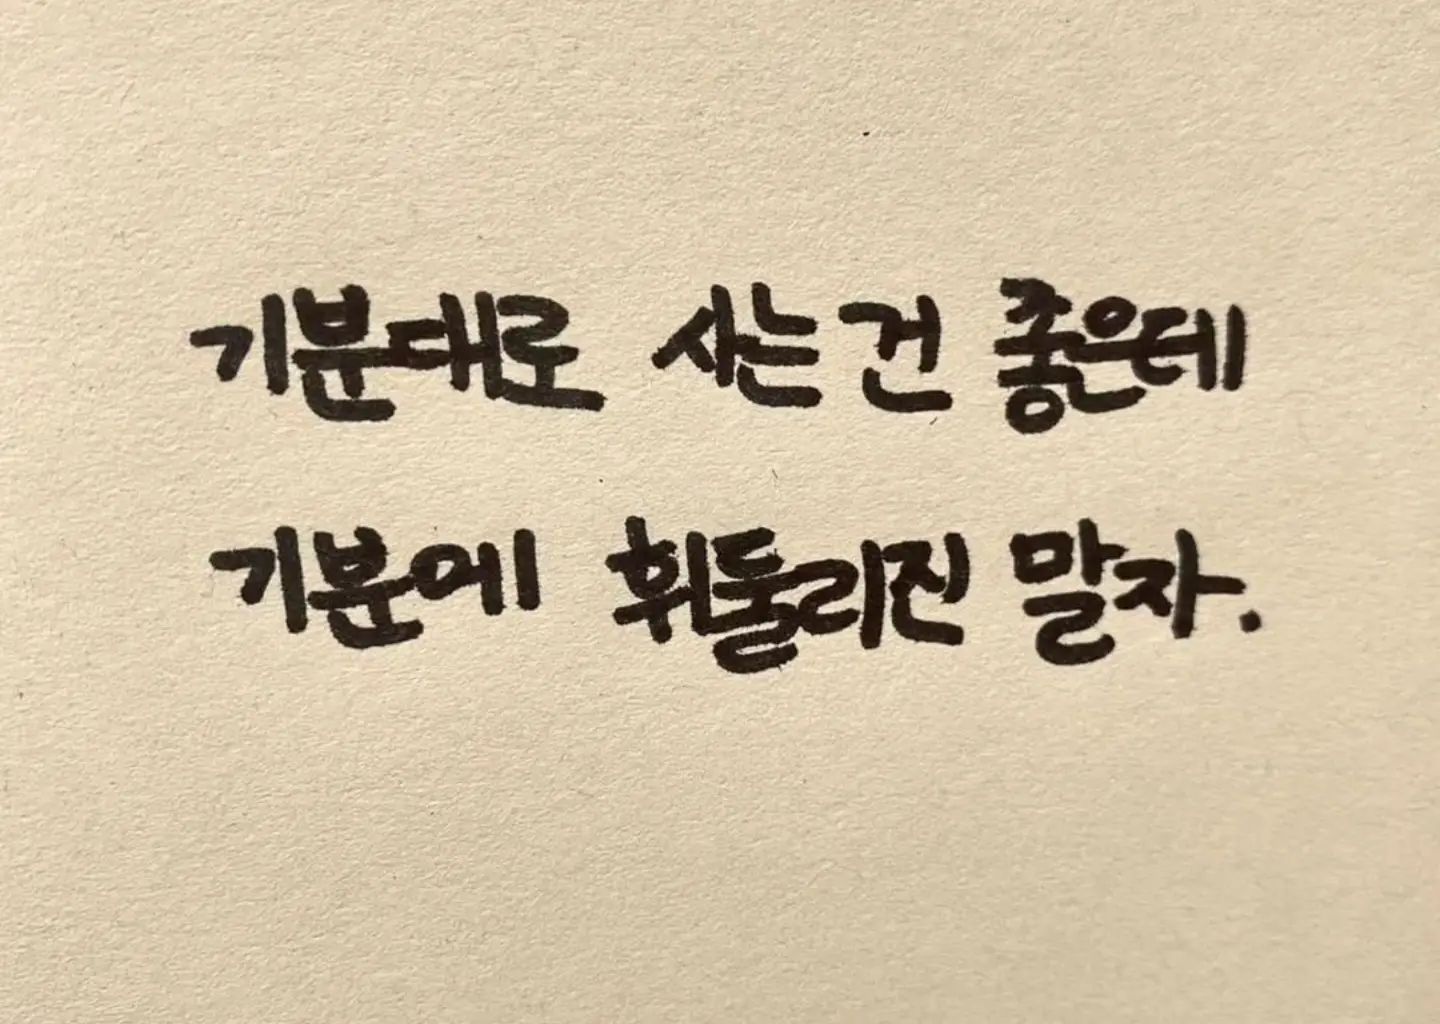 기분대로 사는 건 좋은데
기분에 휘둘리진 말자.